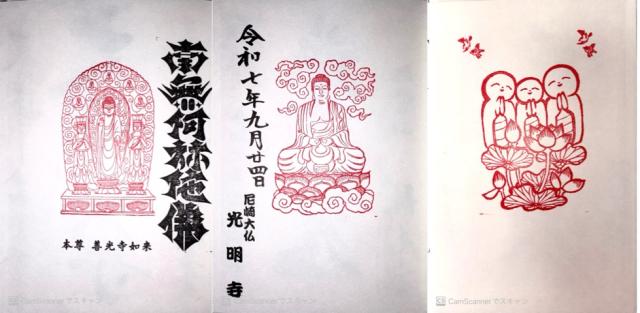 南無阿弥陀佛
本尊 善光寺如来
CamScanner でスキャン
令和七年九月廿四日
尼崎大仏
光明寺
CamScanner でスキャン
CamScanner でスキャン